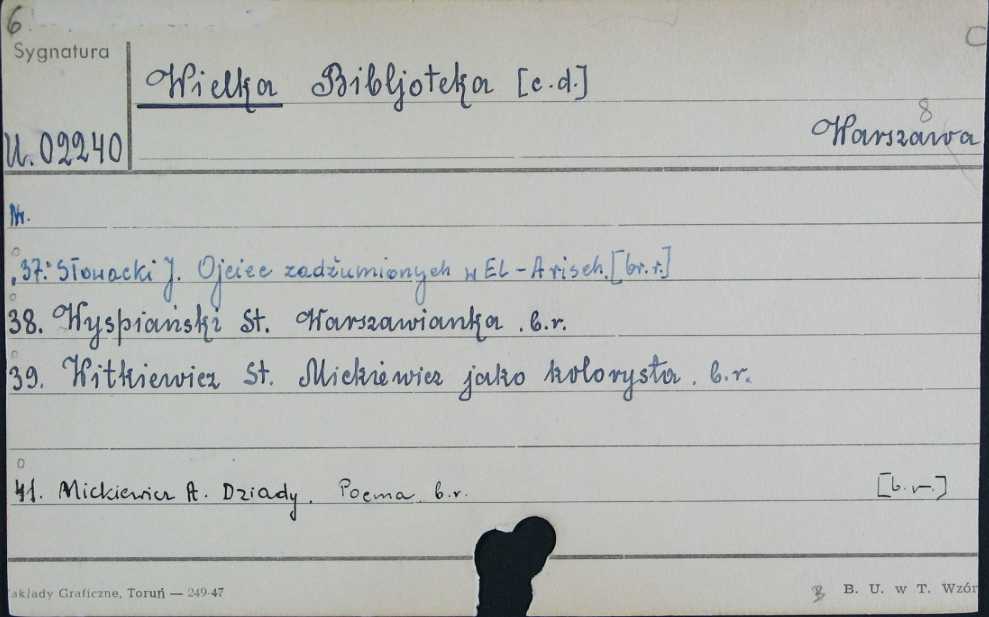 6
C
Sygnatura
Wielka Bibljoteka [c.d.]
8
Warszawa
U. 02240
Nr.
37. Słowacki J. Ojciec zadżumionych w El-Arisch. [b.r.]
38. Wyspiański St. Warszawianka. b.r.
39. Witkiewicz St. Mickiewicz jako kolorysta. b.r.
41. Mickiewicz A. Dziady. Poema b.r. [b.r.]
akłady Graficzne, Toruń — 249-47
B B. U. w T. Wzór